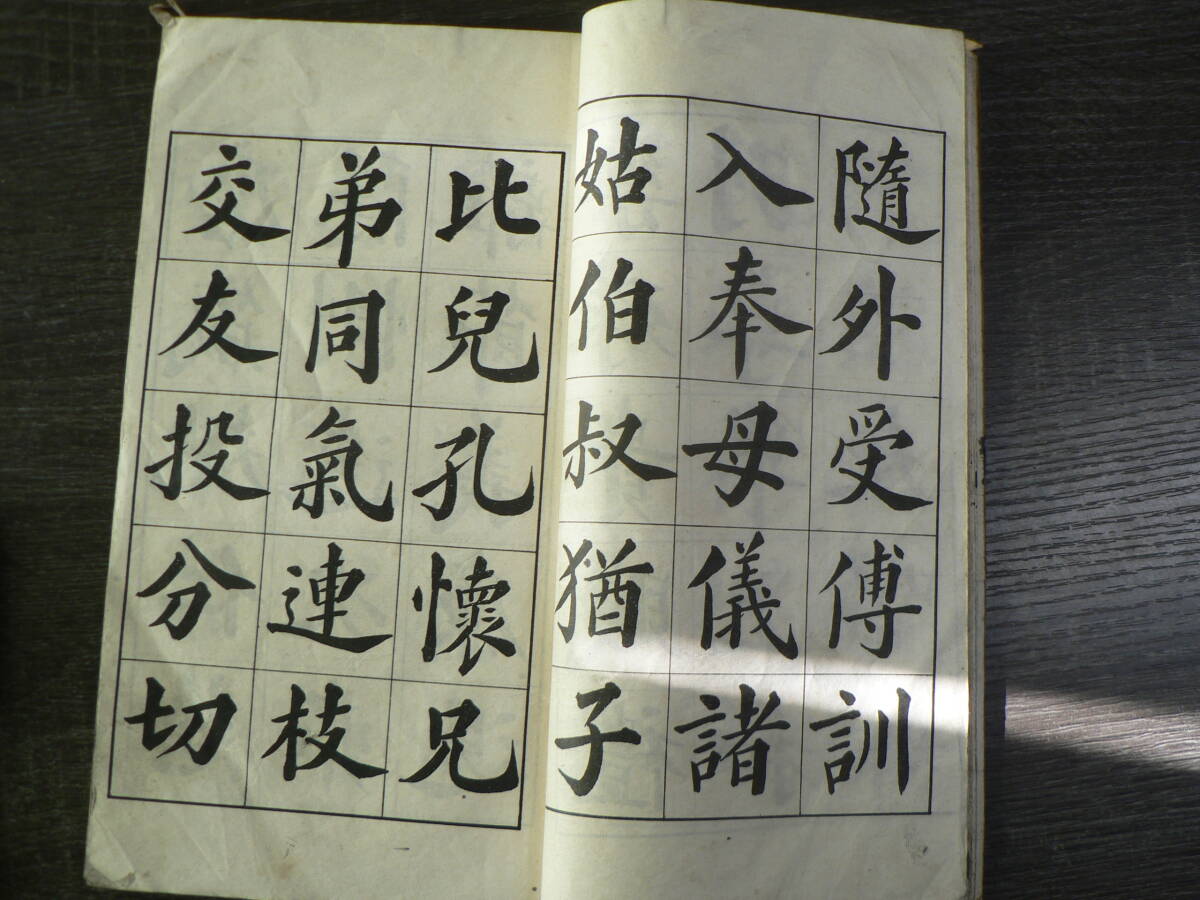 隨外受傅訓
入奉母儀諸
姑伯叔猶子
比兒孔懷兄
弟同氣連枝
交友投分切